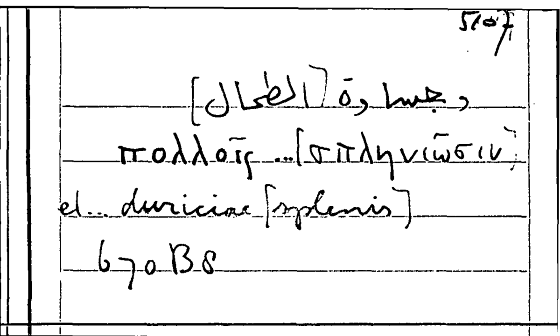 5107
و جساوة [الطحال]
πολλοῖς ... [σπληνιῶσιν]
et... duriciae [splenis]
670 B8